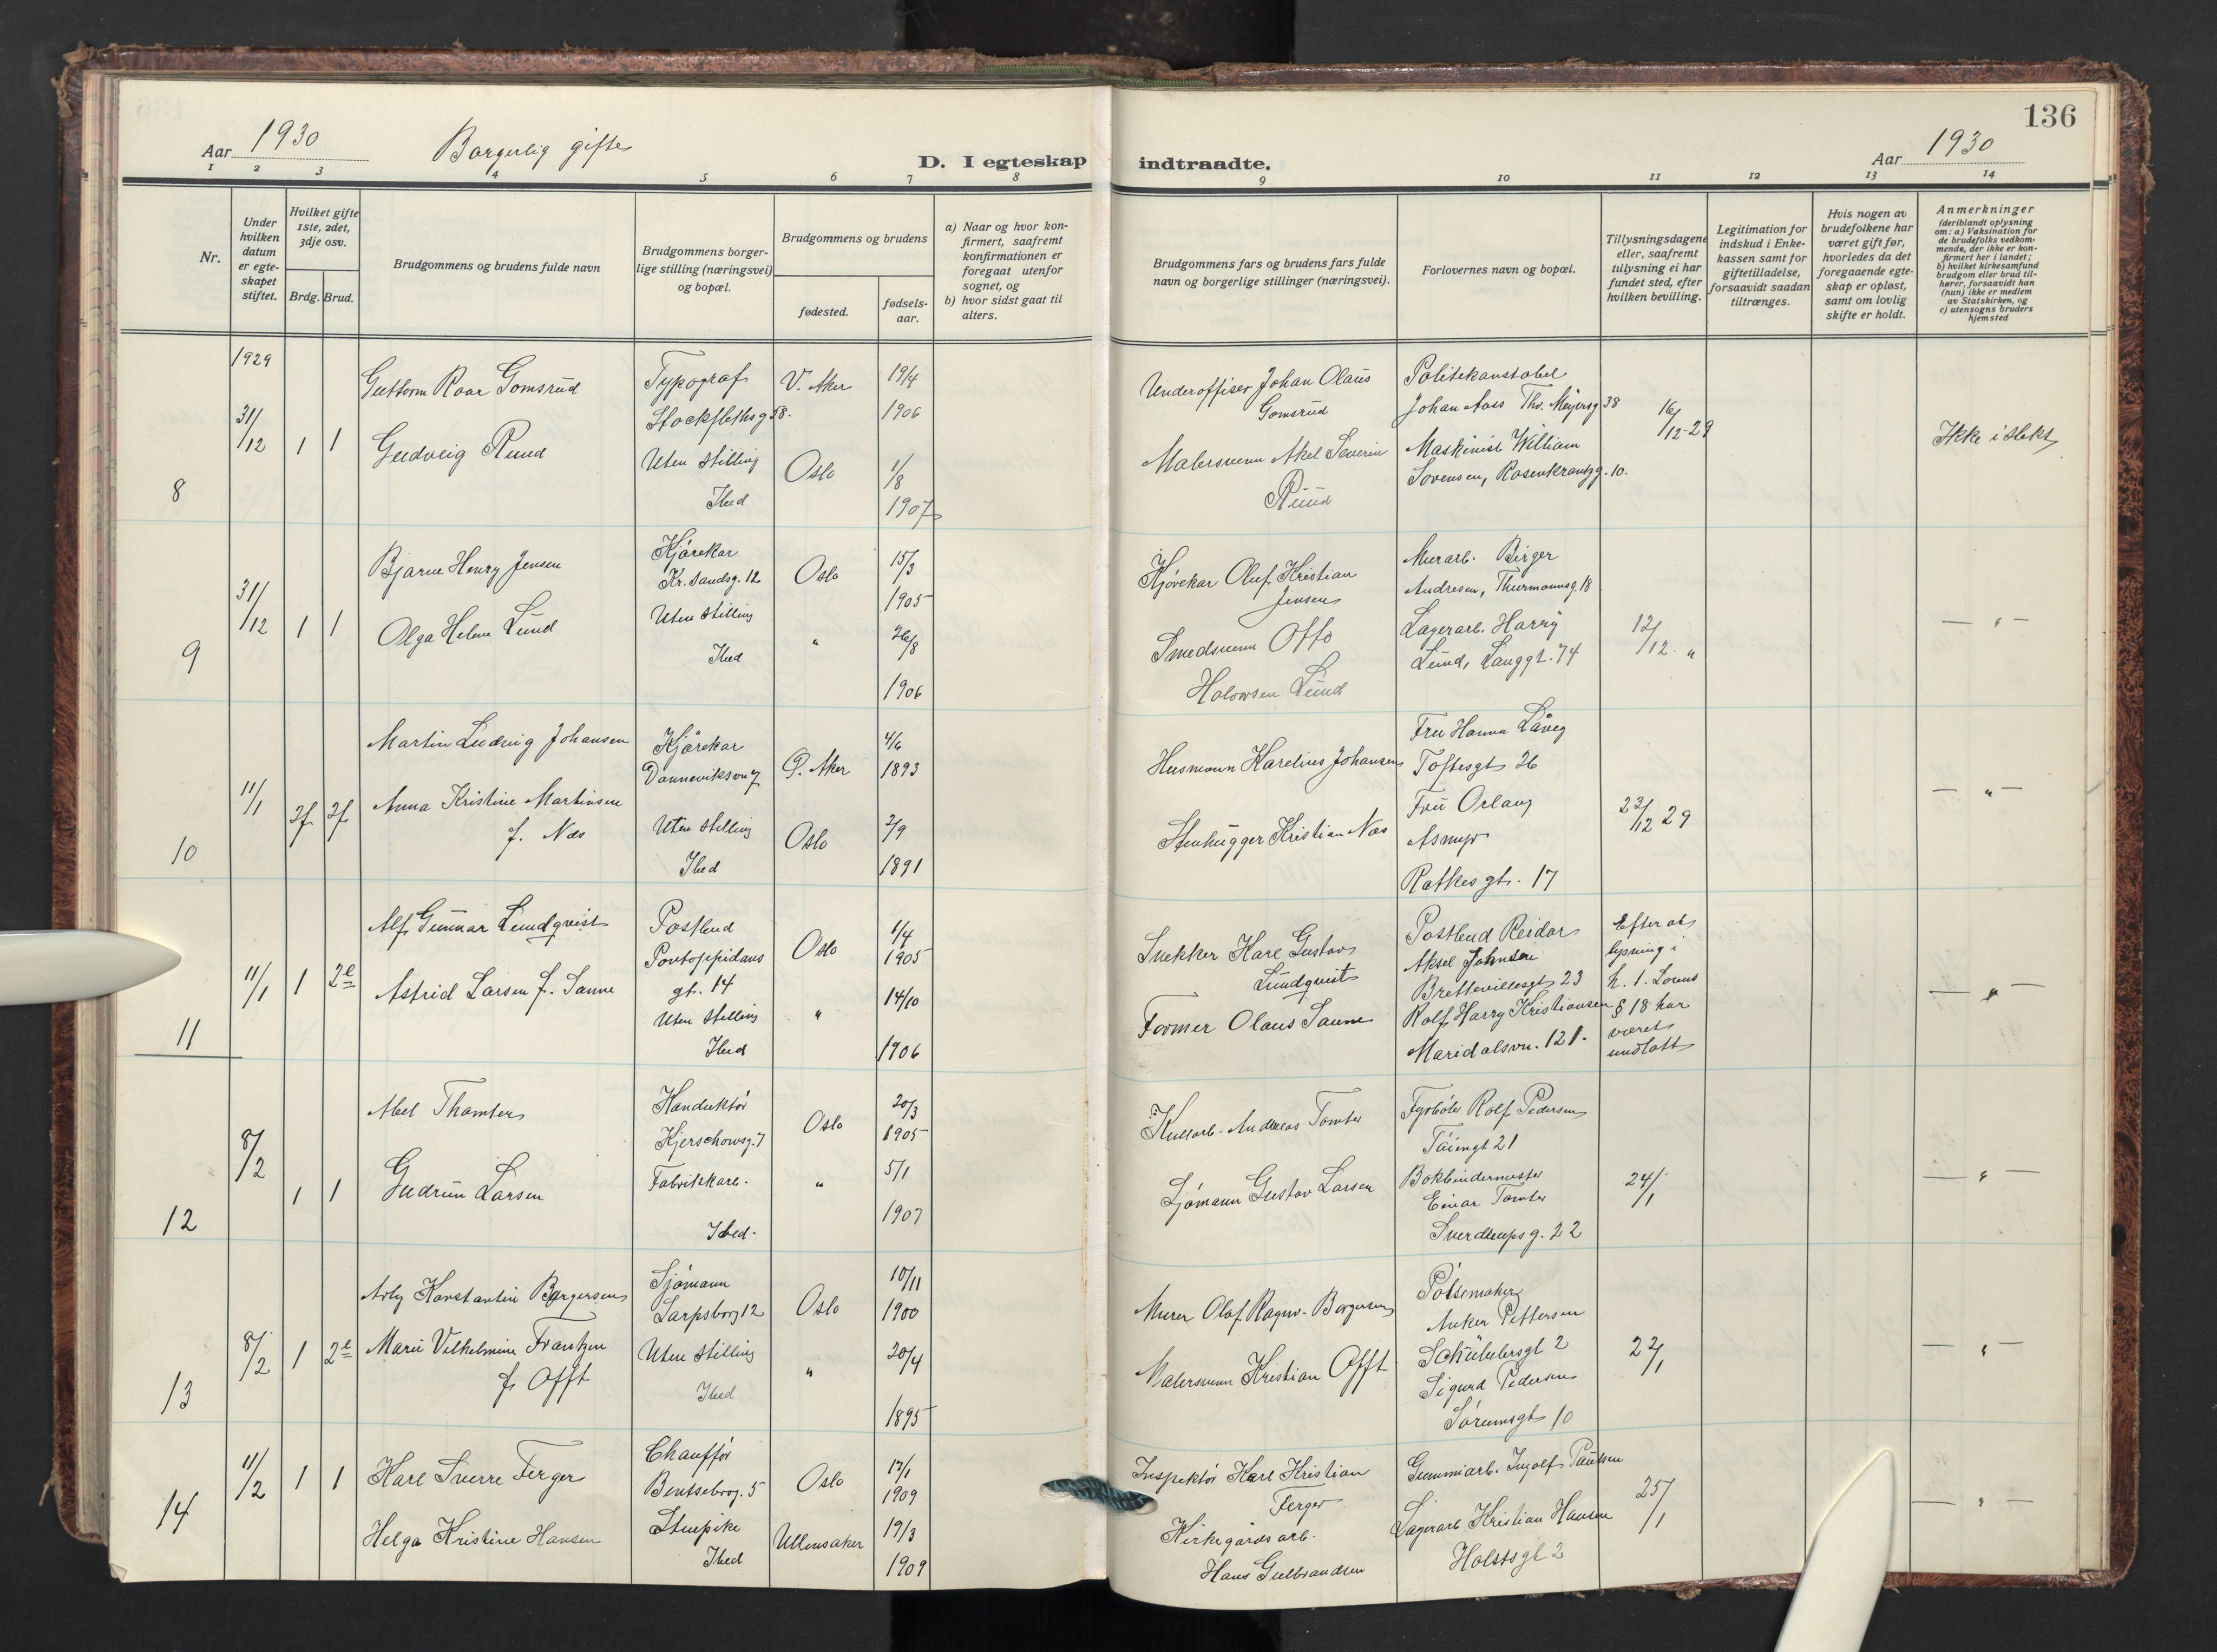 136
Aar 1930
Borgerlig gifte
D. I egteskap indtraadte.
Aar 1930
1 2 3 4 5 6 7 8 9 10 11 12 13 14
Nr.
Under hvilken datum er egteskapet stiftet.
Hvilket gifte 1ste, 2det, 3dje osv.
Brdg. Brud.
Brudgommens og brudens fulde navn
Brudgommens borgerlige stilling (næringsvei) og bopæl.
Brudgommens og brudens
fødested.
fødselsaar.
a) Naar og hvor konfirmert, saafremt konfirmationen er foregaat utenfor sognet, og
b) hvor sidst gaat til alters.
Brudgommens fars og brudens fars fulde navn og borgerlige stillinger (næringsvei).
Forlovernes navn og bopæl.
Tillysningsdagene eller, saafremt tillysning ei har fundet sted, efter hvilken bevilling.
Legitimation for indskud i Enkekassen samt for giftetilladelse, forsaavidt saadan tiltrænges.
Hvis nogen av brudefolkene har været gift før, hvorledes da det foregaaende egteskap er opløst, samt om lovlig skifte er holdt.
Anmerkninger (deriblandt oplysning om: a) Vaksination for de brudefolks vedkommende, der ikke er konfirmert her i landet; b) hvilket kirkesamfund brudgom eller brud tilhører, forsaavidt han (hun) ikke er medlem av Statskirken, og c) utensogns bruders hjemsted
8
1929
31/12
1 1
Guttorm Roar Gomsrud
Gudveig Ruud
Typograf
Stockflethsg 58.
Uten stilling
Ibed
V. Aker
Oslo
19/4
1906
1/8
1907
Underoffiser Johan Olaus
Gomsrud
Malersvenn Aksel Severin
Ruud
Politikonstabel
Johan Aass Thv. Meyersg 38
Maskinist William
Sørensen, Rosenkrantzg. 10.
16/12-29
Ikke i slekt
9
31/12
1 1
Bjarne Henry Jensen
Olga Helene Lund
Kjørekar
Kr.sandsg. 12
Uten stilling
Ibed
Oslo
"
15/3
1905
26/8
1906
Kjørekar Oluf Kristian
Jensen
Smedsvenn Otto
Halvorsen Lund
Murarb. Birger
Andresen, Thurmannsg. 18
Lagerarb. Harry
Lund, Langgt. 74
12/12 "
— " —
10
11/1
2f 2f
Martin Ludvig Johansen
Anna Kristine Martinsen
f. Næs
Kjørekar
Danneviksvn 7
Uten stilling
Ibed
Ø. Aker
Oslo
4/6
1893
2/9
1891
Husmann Karelius Johansen
Stenhugger Kristian Næs
Fru Hanna
Toftesgt 26
Fru
Rathkes gt. 17
23/12 29
— " —
11
11/1
1 2e
Alf Gunnar Lundqvist
Astrid Larsen f. Sanne
Postbud
Pontoppidans
gt. 14
Uten stilling
Ibed
Oslo
"
1/4
1905
14/10
1906
Snekker Karl Gustav
Lundqvist
Former Olaus Sanne
Postbud Reidar
Aksel Johnsen
Brettevillesgt 23
Rolf Harry Kristiansen
Maridalsvn. 121.
Efter at
lysning i
h. t. Lovens
§ 18 har
været
undlatt
— " —
12
8/2
1 1
Abel Thamter
Gudrun Larsen
Konduktør
Kjerschowsg. 7
Fabrikkarb.
Ibed.
Oslo
"
20/3
1905
5/1
1907
Kullarb. Andreas Tomter
Sjømann Gustav Larsen
Fyrbøter Rolf Pedersen
Tøiengt 21
Bokbindermester
Einar Tomter
Sverdrupsg. 22
24/1
— " —
13
8/2
1 2e
Arly Konstantin Borgersen
Marie Vilhelmine Frantzen
f. Offt
Sjømann
Sarpsborg 12
Uten stilling
Ibed
Oslo
"
10/11
1900
20/4
1895
Murer Olaf Ragnv. Borgersen
Malersvenn Kristian Offt
Pølsemaker
Anker Pettersen
Schübelersgt 2
Sigurd Pedersen
Sørumsgt 10
22/1
— " —
14
11/2
1 1
Karl Sverre Ferger
Helga Kristine Hansen
Chauffør
Bentsebrog. 5
Stuepike
Ibed
Oslo
Ullensaker
17/1
1909
19/3
1909
Inspektør Karl Kristian
Ferger
Kirkegårdsarb.
Hans Gulbrandsen
Gummiarb. Ingolf Paulsen
Lagerarb Kristian Hansen
Holstsgt 2
25/1
— " —